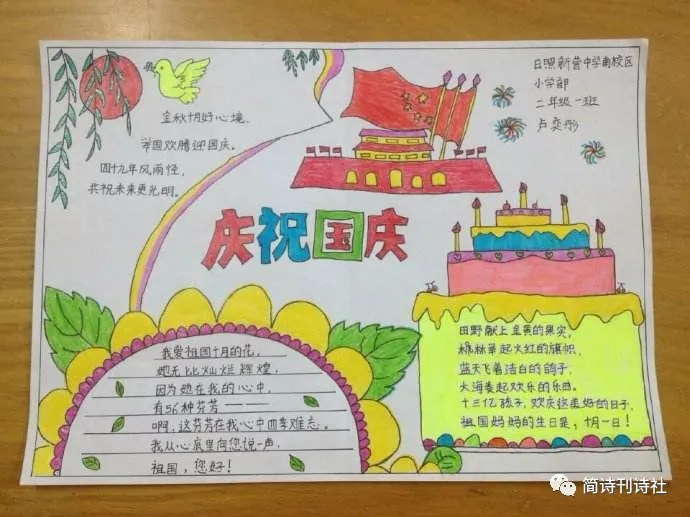 金秋十月好心境，
举国欢腾迎国庆。
四十九年风雨怪，
共祝未来更光明。
日照新营中学南校区
小学部
二年级一班
卢奕彤
庆祝国庆
我爱祖国十月的花，
她无比灿烂辉煌，
因为她在我的心中，
有56种芬芳——
啊，这芬芳在我心中四季难忘。
我从心底里向您说一声，
祖国，您好！
田野献上金黄的果实。
枫林举起火红的旗帜，
蓝天飞着洁白的鸽子，
大海奏起欢乐的乐曲。
十三亿孩子，欢庆这美好的日子，
祖国妈妈的生日是，十月一日！
简诗刊诗社